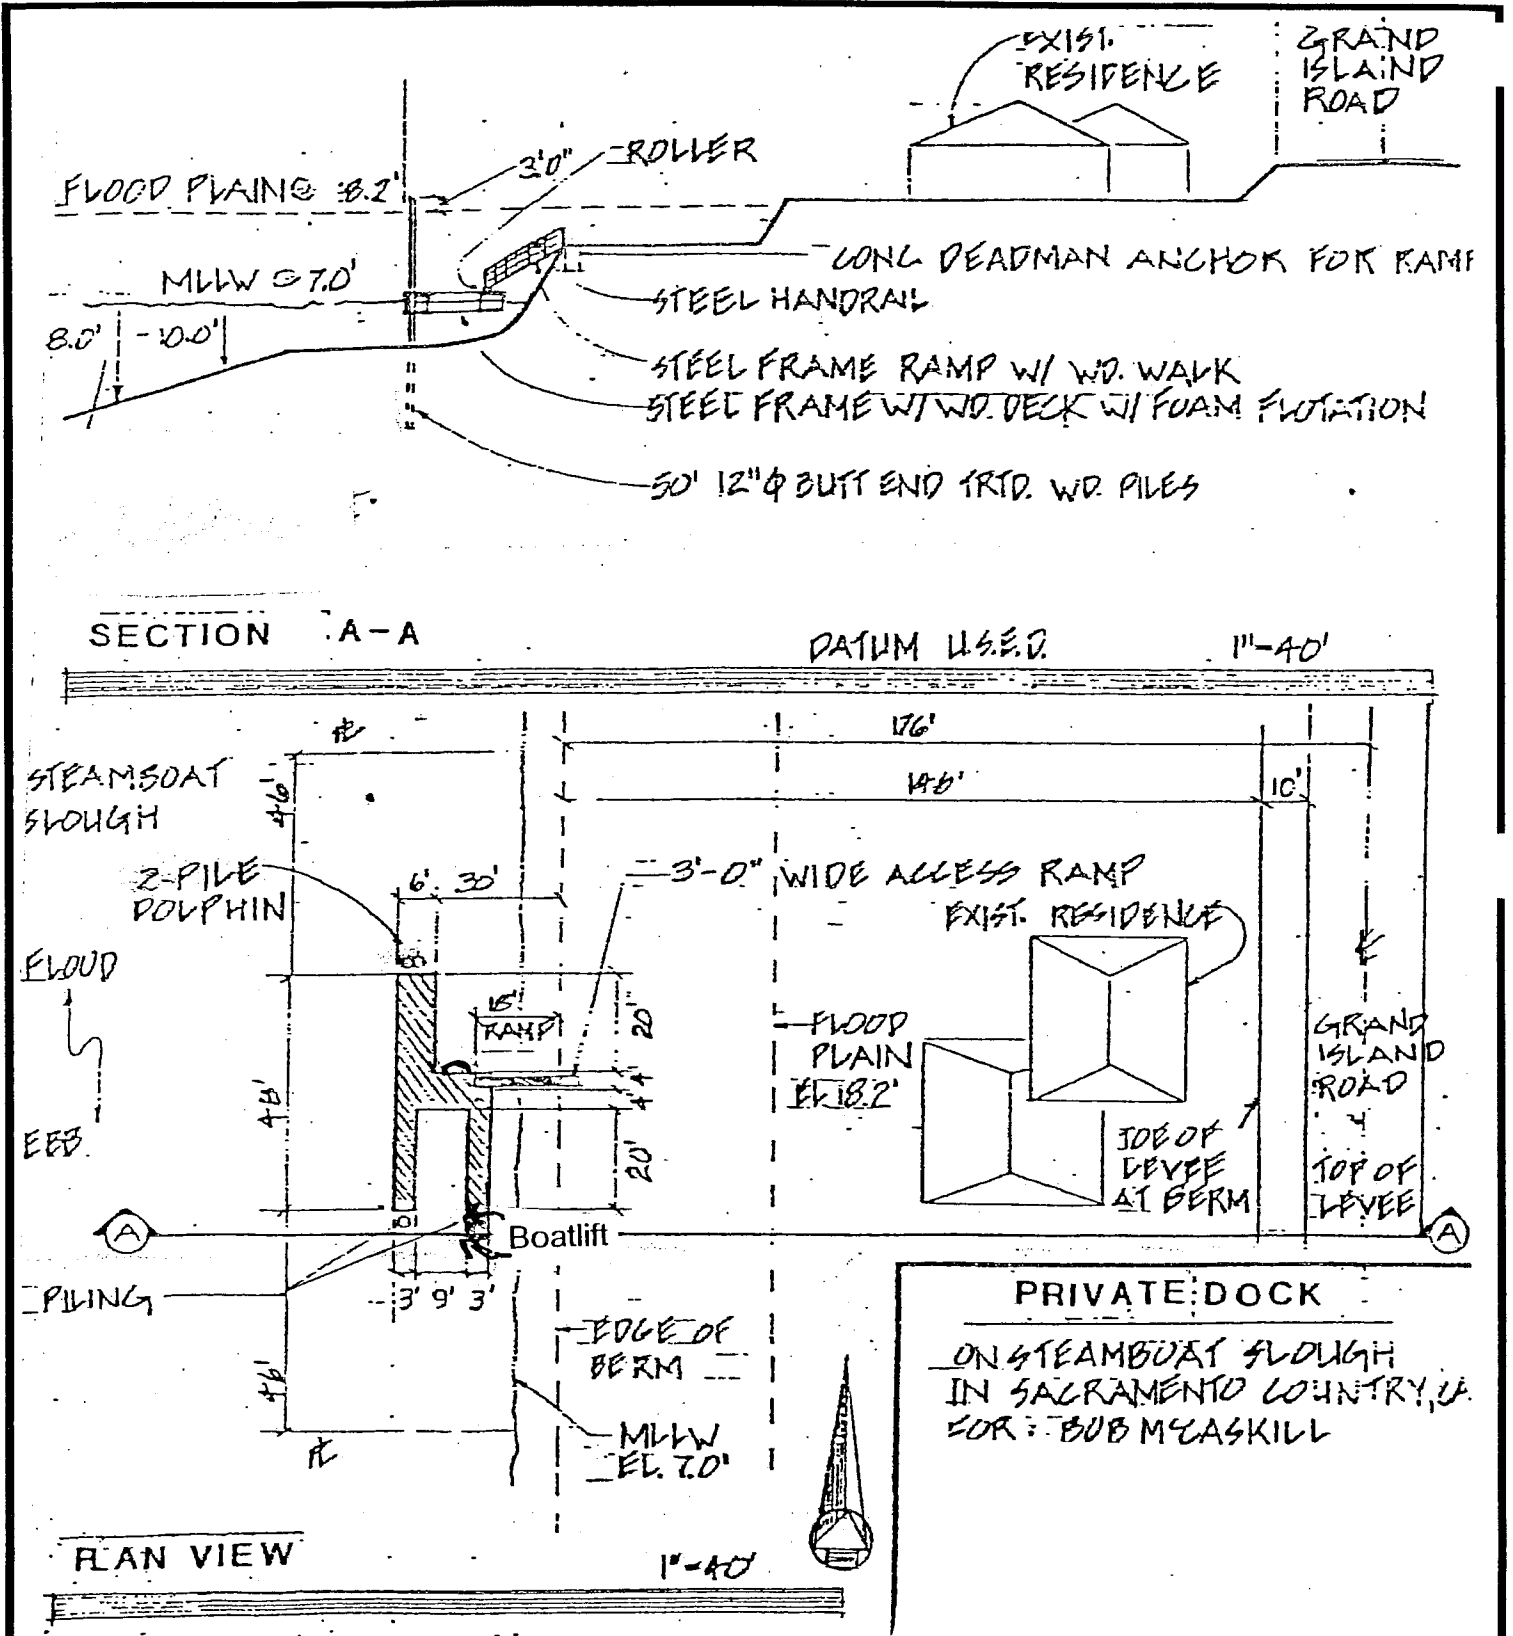 EXIST.
RESIDENCE
GRAND
ISLAND
ROAD
3'0"
ROLLER
FLOOD PLAIN @ 18.2'
CONC. DEADMAN ANCHOR FOR RAMP
MLLW @ 7.0'
STEEL HANDRAIL
8.0' - 10.0'
STEEL FRAME RAMP W/ WD. WALK
STEEL FRAME W/ WD. DECK W/ FOAM FLOTATION
50' 12"φ BUTT END TRTD. WD. PILES
SECTION A-A
DATUM U.S.E.D.
1"-40'
176'
STEAMBOAT
SLOUGH
46'
146'
10'
2-PILE
DOLPHIN
6'
30'
3'-0" WIDE ACCESS RAMP
EXIST. RESIDENCE
FLOOD
EBB
48'
RAMP
20'
4'
4'
20'
FLOOD
PLAIN
EL 18.2'
GRAND
ISLAND
ROAD
TOE OF
LEVEE
AT BERM
TOP OF
LEVEE
A
Boatlift
A
PILING
3' 9' 3'
EDGE OF
BERM
46'
MLLW
EL. 7.0'
PRIVATE DOCK
ON STEAMBOAT SLOUGH
IN SACRAMENTO COUNTRY, CA
FOR: BOB McCASKILL
PLAN VIEW
1"-40'